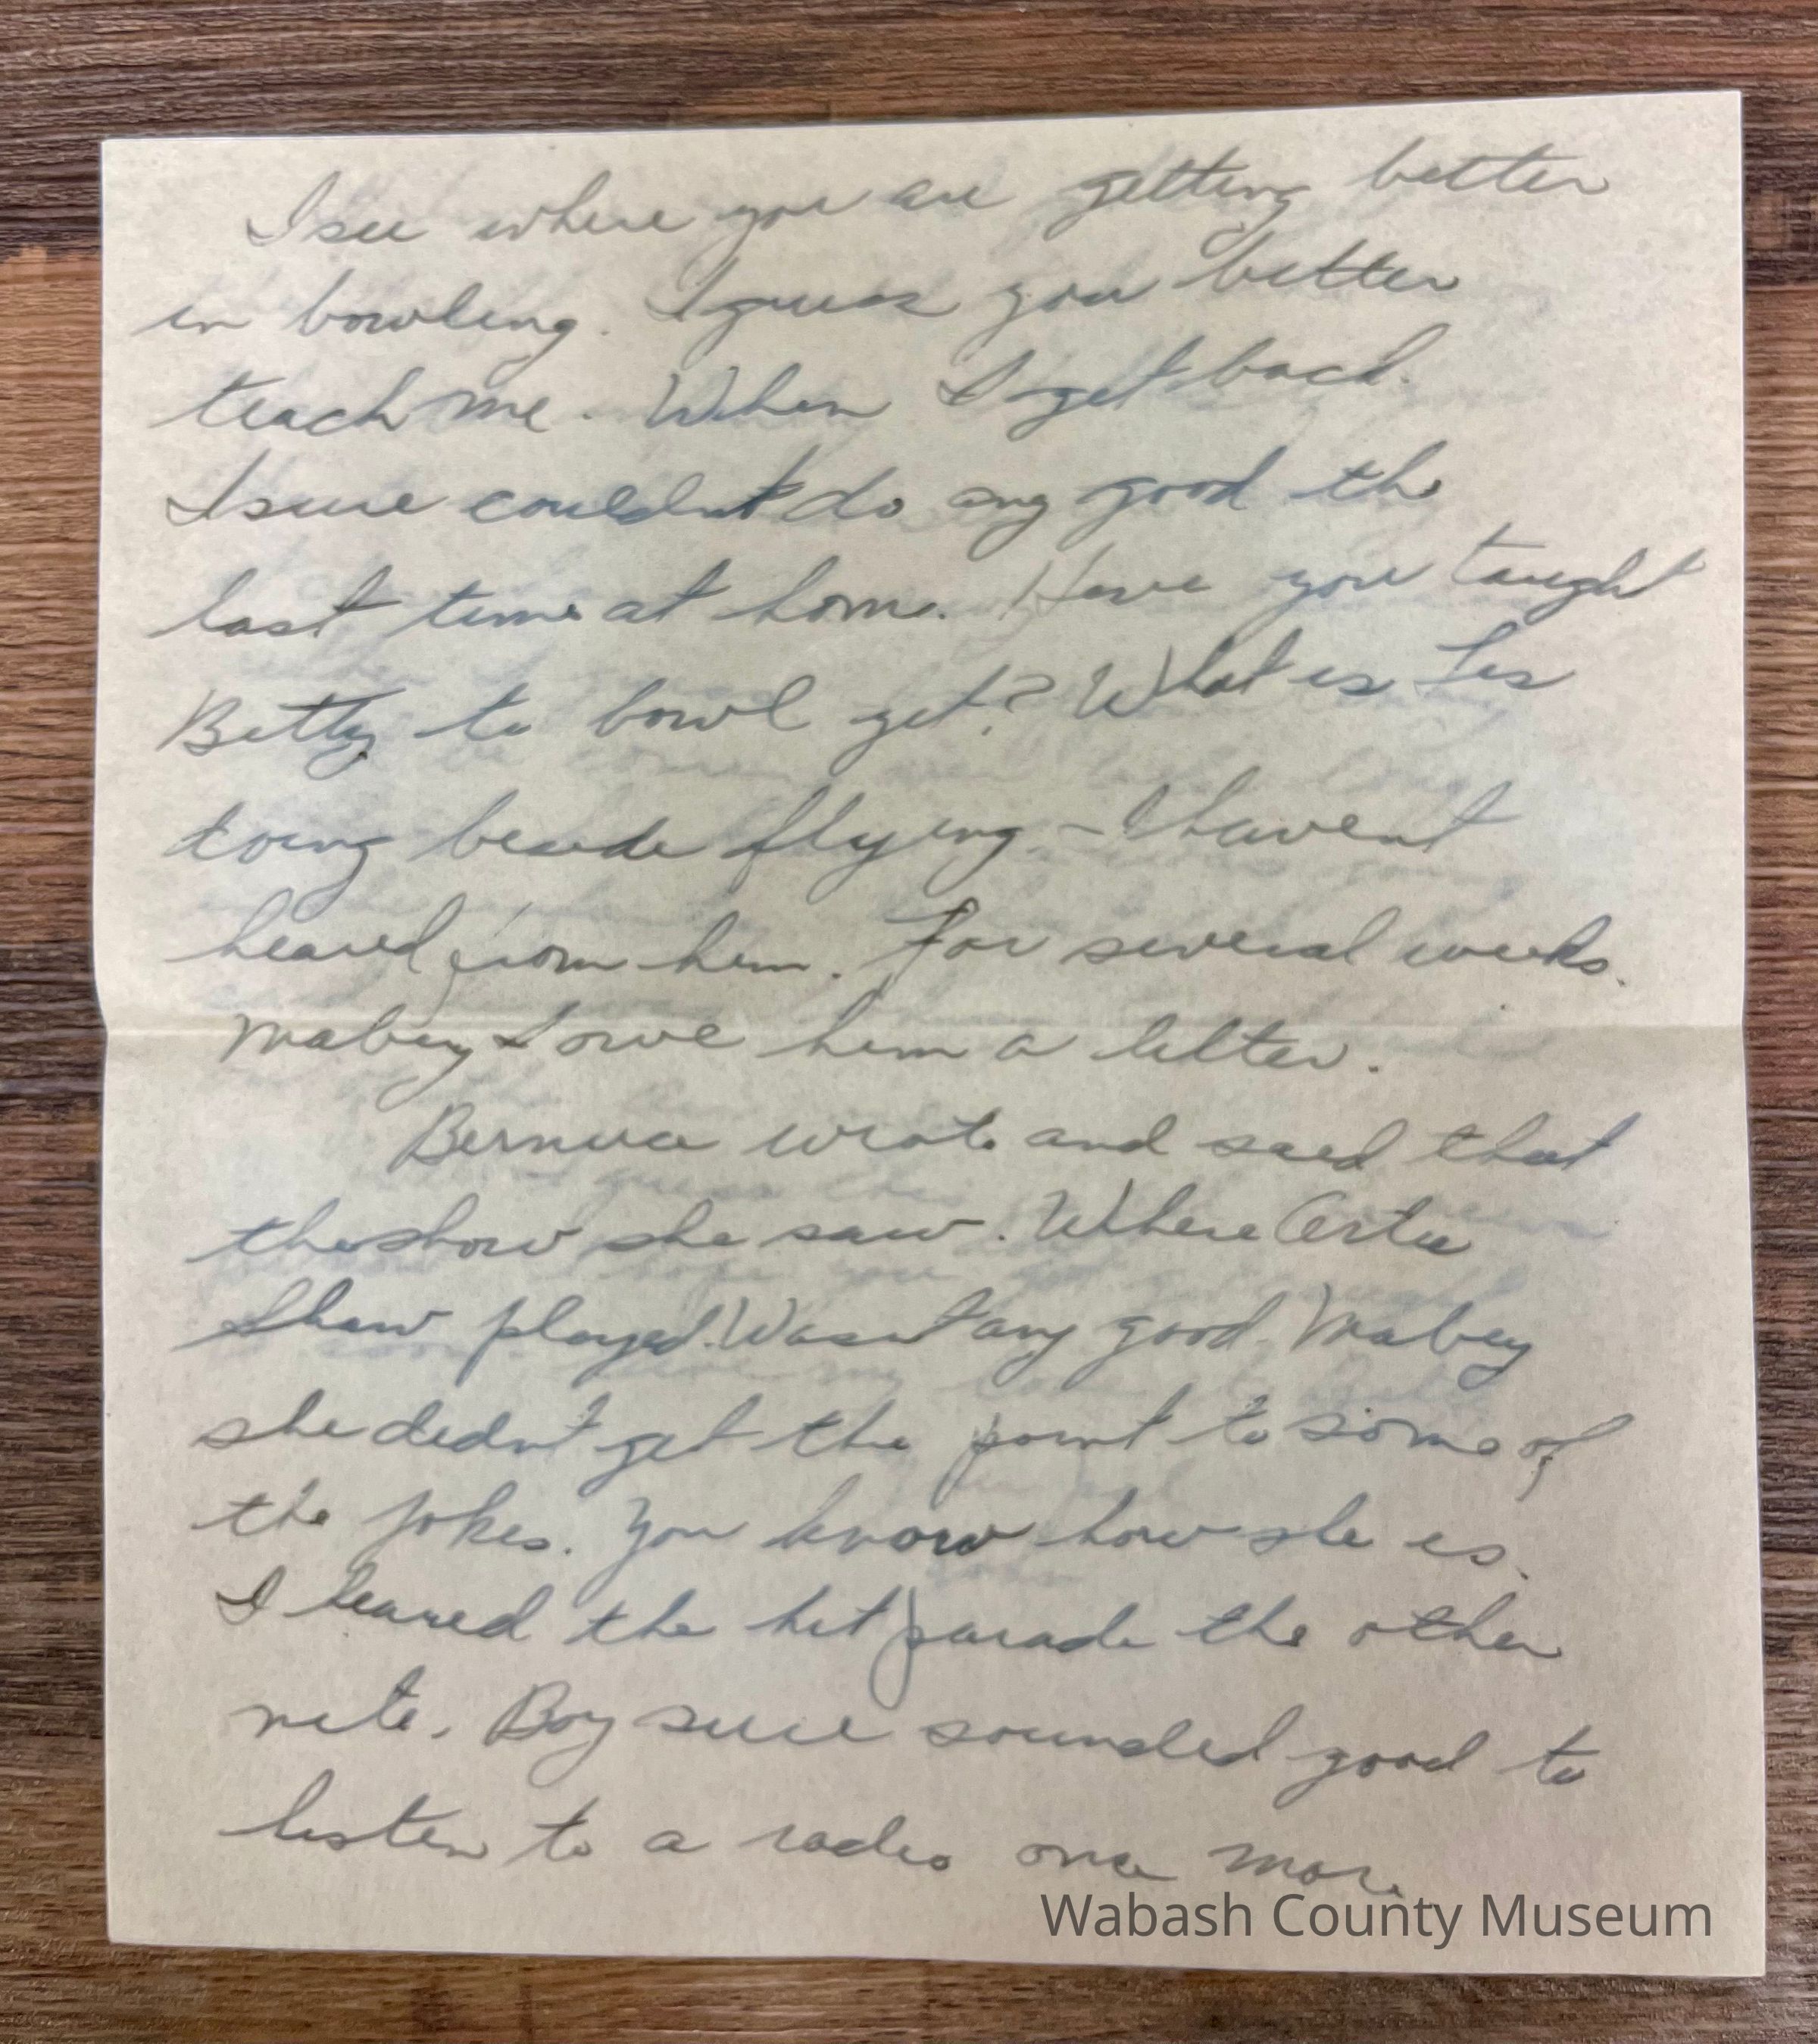 I see where you are getting better
in bowling. I guess you better
teach me. When I get back.
I sure couldn't do any good the
last time at home. Have you taught
Betty to bowl yet? What is Les
doing beside flying - I havent
heared from him. For several weeks.
Mabey I owe him a letter.
Bernice wrote and said that
the show she saw. Where Artie
Shaw played. Wasn't any good. Mabey
she didn't get the point to some of
the jokes. You know how she is.
I heared the hit parade the other
nite. Boy sure sounded good to
listen to a radio once more.
Wabash County Museum